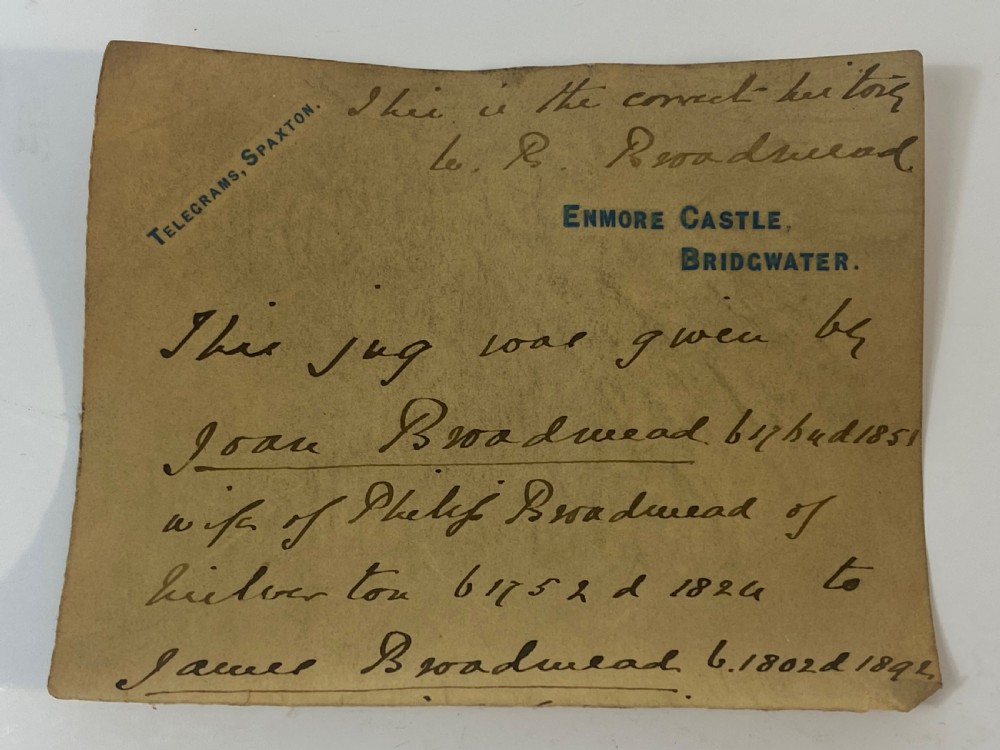 This is the correct history
W. B. Broadmead
TELEGRAMS, SPAXTON.
ENMORE CASTLE,
BRIDGWATER.
This jug was given by
Joan Broadmead b 1764 d 1851
wife of Philip Broadmead of
Milverton b 1752 d 1824 to
James Broadmead b. 1802 d 1892